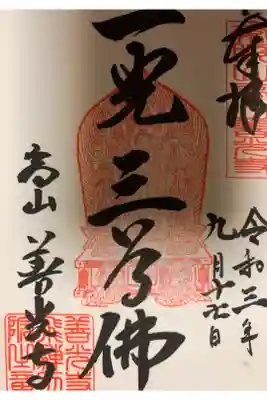 奉拝
令和三年
九月十七日
一光三尊佛
高山
善光寺